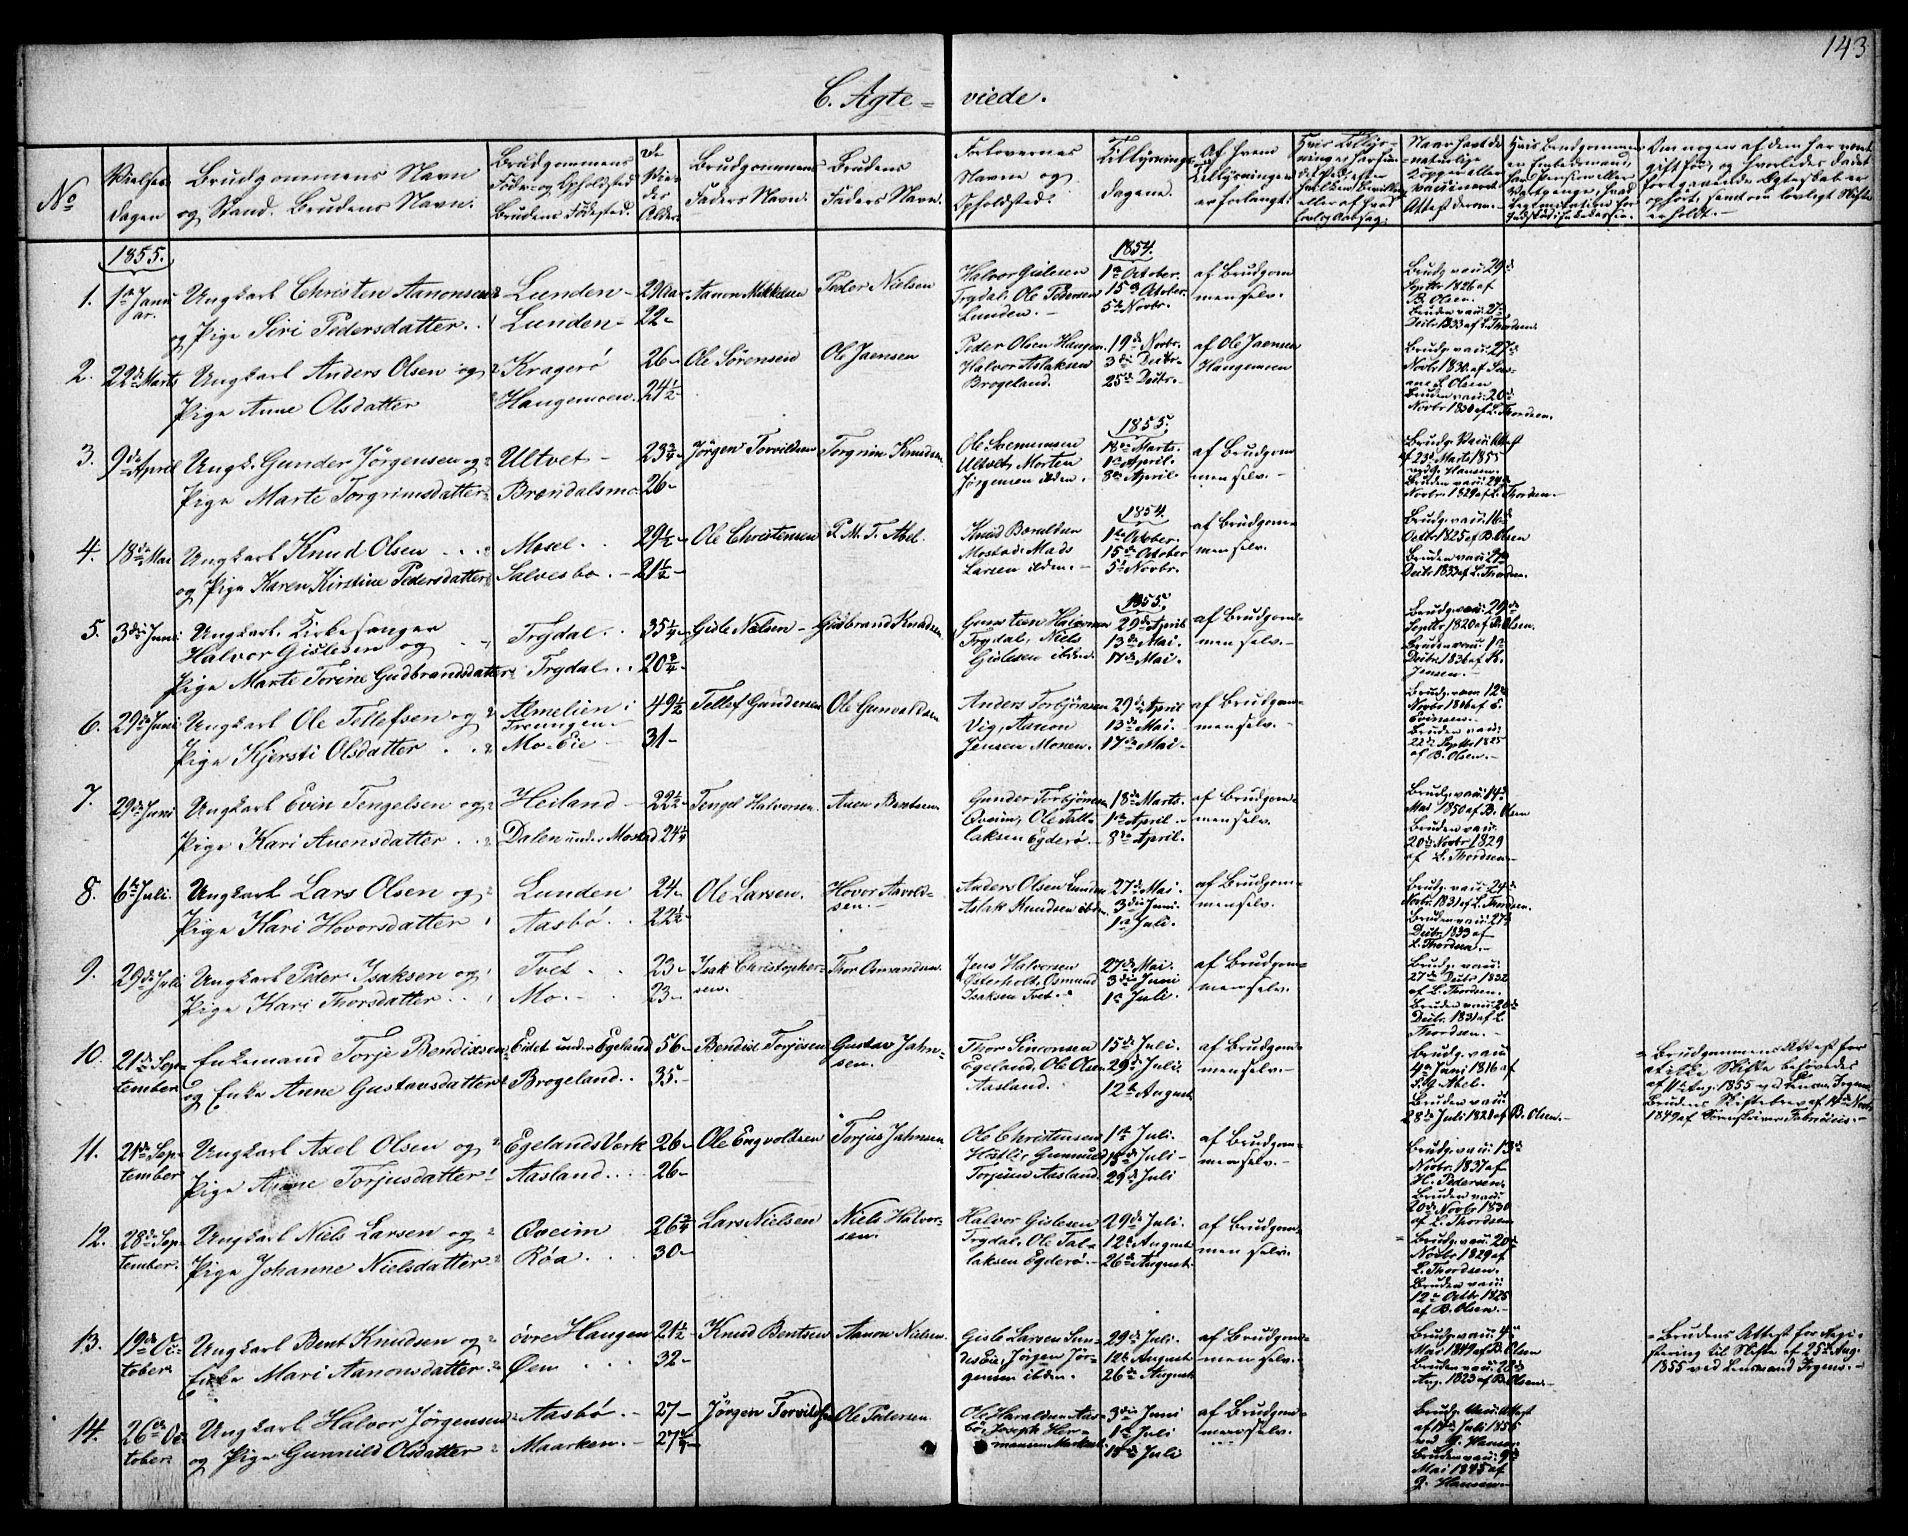 143
C. Agte- viede.
No
Vielses
dagen
Brudgommens Navn
og Stand. Brudens Navn.
Brudgommens
Føde- og Opholdsted
Brudens Fødested.
De
Vie-
des
Alder.
Brudgommens
Faders Navn.
Brudens
Faders Navn.
Forlovernes
Navne og
Opholdsted.
Tillysnings-
dagene.
Af hvem
Tillysningen
er forlangt.
1855.
1. 1ste Janu-
ar.
Ungkarl Christen Aanonsen
og Pige Siri Pedersdatter.
Lunden
Lunden
29 Aar
22
Aanon Mikkelsen
Peder Nielsen
Halvor Gislesen
Trydal, Ole Pedersen
Lunden.
1854.
1ste October.
15de October.
5te Novbr.
af Brudgom
men selv.
Brudg. vacc: 29de
Septbr 1826 af
B. Olsen.
Bruden vacc: 27de
Decbr 1833 af L. Thordsen.
2. 22de Marts
Ungkarl Anders Olsen og
Pige Anne Olsdatter
Kragerö
Haugemoen.
26
24½
Ole Sörensen
Ole Jaensen
Peder Olsen Haugen.
Halvor Aslaksen
Brogeland.
19de Novbr.
3die Decbr.
25de Decbr.
af Ole Jaensen
Haugemoen
Brudg. vacc: 27de
Novbr 1830 af
Olsen
Bruden vacc: 20de
Novbr 1830 af L. Thordsen.
3. 9de April
Ungk. Gunder Jörgensen og
Pige Marte Torgrimsdatter
Ultvet
Brændalsmo
23¾
26
Jörgen Torvildsen
Torgrim Knudsen
Ole
Ultvet, Morten
Jörgensen ibden.
1855.
18de Marts.
1ste April.
8de April
af Brudgom
men selv.
Brudg. Vacc: Attest
af 23de Marts 1855
ved G. Hansen.
Bruden vacc: 24de
Novbr 1829 af L. Thordsen.
4. 18de Mai
Ungkarl Knud Olsen
og Pige Karen Kirstine Pedersdatter
Mosel.
Salvesbo.
29½
21½
Ole Christensen
P. M. T. Abel.
Knud
Mostad, Mads
Larsen ibden.
1854.
1ste October.
15de October
5te Novbr.
af Brudgom-
men selv.
Brudg. vacc: 16de
Octbr 1825 af B. Olsen
Bruden vacc: 21de
Decbr 1833 af L. Thordsen.
5. 3die Juni
Ungkarl. Kirkesanger
Halvor Gislesen og
Pige Marte Torine Gudbrandsdatter
Trydal.
Trydal.
35¼
20¾
Gisle Nielsen
Gudbrand Knudsen
Halvorsen
Trydal, Niels
Gislesen ibden.
1855.
29de April
13de Mai.
17de Mai.
af Brudgom-
men selv.
Brudg. vacc: 29de
Septbr 1820 af B. Olsen.
Bruden vacc: 1ste
Decbr 1836 af K.
Jensen.
6. 29de Juni
Ungkarl Ole Tellefsen og
Pige Kjersti Olsdatter
Almelien i
Tromgen
Mo-Eie
49½
31
Tellef Gundersen
Ole Gunvaldsen
Anders Torbjörnsen
Vig, Aanon
Jensen Monen.
29de April
13de Mai.
17de Mai.
af Brudgom-
men selv.
Brudg. vacc: 12te
Novbr 1806 af
Bruden vacc:
22de Septbr 1825
af B. Olsen.
7. 29de Juni
Ungkarl Evin Tengelsen og
Pige Kari Auensdatter
Heiland
Dalen under Mostad
22½
24¼
Tengel Halvorsen
Auen Bentsen
Gunder Torbjörnsen
Oveim, Ole Tal-
laksen Egderö.
18de Marts.
1ste April.
8de April.
af Brudgom-
men selv.
Brudg. vacc: 14de
Mai 1850 af B. Olsen
Bruden vacc:
20de Novbr 1829
af L. Thordsen.
8. 6te Juli.
Ungkarl Lars Olsen og
Pige Kari Hovorsdatter
Lunden
Aasbö.
24
22½
Ole Larsen.
Hovor Aavold-
sen.
Anders Olsen Lunden
Aslak Knudsen ibden.
27de Mai.
3die Juni.
1ste Juli.
af Brudgom-
men selv.
Brudg. vacc: 24de
Novbr. 1831 af L. Thordsen.
Bruden vacc: 27de
Decbr 1833 af
L. Thordsen.
9. 29de Juli
Ungkarl Peder Isaksen og
Pige Kari Thorsdatter
Tvet.
Mo.
23
23
Isak Christopher-
sen.
Thor Osmundsen
Jens Halvorsen
Österholt, Osmund
Isaksen Tvet.
27de Mai.
3die Juni
1ste Juli.
af Brudgom-
men selv.
Brudg. vacc:
27de Decbr 1832
af L. Thordsen.
Bruden vacc: 26de
Decbr. 1831 af L.
Thordsen.
10. 21de Sep-
tember
Enkemand Torje Bendixsen
og Enke Anne Gustavsdatter
Eidet under Egeland
Brogeland.
56
35.
Bendixt Torjesen
Gustav Jahn-
sen.
Thor Simonsen
Egeland, Ole Olsen
Aasland.
15de Juli.
29de Juli.
12te August
af Brudgom-
men selv.
Brudg. vacc:
4de Juni 1816 af
Abel.
Bruden vacc:
28de Juli 1821 af B. Olsen.
Brudgommens Attest for
at ikke Skifte behövedes
af 11te Aug. 1855 ved Lensm. Irgens.
Brudens Skiftebrev af 14de Novbr
1849 af Sorenskriver Fabricius.
11. 21de Sep-
tember
Ungkarl Axel Olsen og
Pige Anne Torjusdatter
Egelands Værk
Aasland.
26
26
Ole Engvoldsen
Torjus Jahnsen
Ole Christensen
Gunnuld
Torjusen Aasland.
1ste Juli.
15de Juli
29de Juli
af Brudgom-
men selv.
Brudg. vacc: 13de
Novbr. 1837 af
H. Pedersen.
Bruden vacc:
20de Novbr 1830
af L. Thordsen
12. 28de Sep-
tember.
Ungkarl Niels Larsen og
Pige Johanne Nielsdatter
Oveim
Röa.
26¾
30
Lars Nielsen
Niels Halvor-
sen.
Halvor Gislesen
Trydal, Ole Tal-
laksen Egderö.
29de Juli.
12te August
26de August.
af Brudgom-
men selv.
Brudg. vacc: 20de
Novbr 1829 af
L. Thordsen.
Bruden vacc:
12te Octbr 1825
af B. Olsen.
13. 19de Oc-
tober.
Ungkarl Bent Knudsen og
Enke Mari Aanonsdatter
övre Haugen
Öen
21½
32
Knud Bentsen
Aanon Nielsen.
Gisle Larsen Sun-
deseie, Jörgen Jör-
gensen ibden.
29de Juli.
12te August
26de August
af Brudgom-
men selv.
Brudg. vacc: 4de
Mai 1849 af B. Olsen
Bruden vacc: 28de
Aug. 1823 af B. Olsen.
Brudens Attest for Regi-
strering til Skifte af 25de Aug.
1855 ved Lensmand Irgens.
14. 26de Oc-
tober.
Ungkarl Halvor Jörgensen
og Pige Gunnild Olsdatter
Aasbö.
Maarken.
27
27¾
Jörgen Torvildsen
Ole Pedersen
Ole Haraldsen Aas-
bö, Joseph Her-
mansen Marken.
3die Juni
1ste Juli
15de Juli
af Brudgom-
men selv.
Brudg. Vacc: Attest
af 14de Juli 1855
ved G. Hansen
Bruden vacc: 9de
Mai 1845 af
G. Hansen.